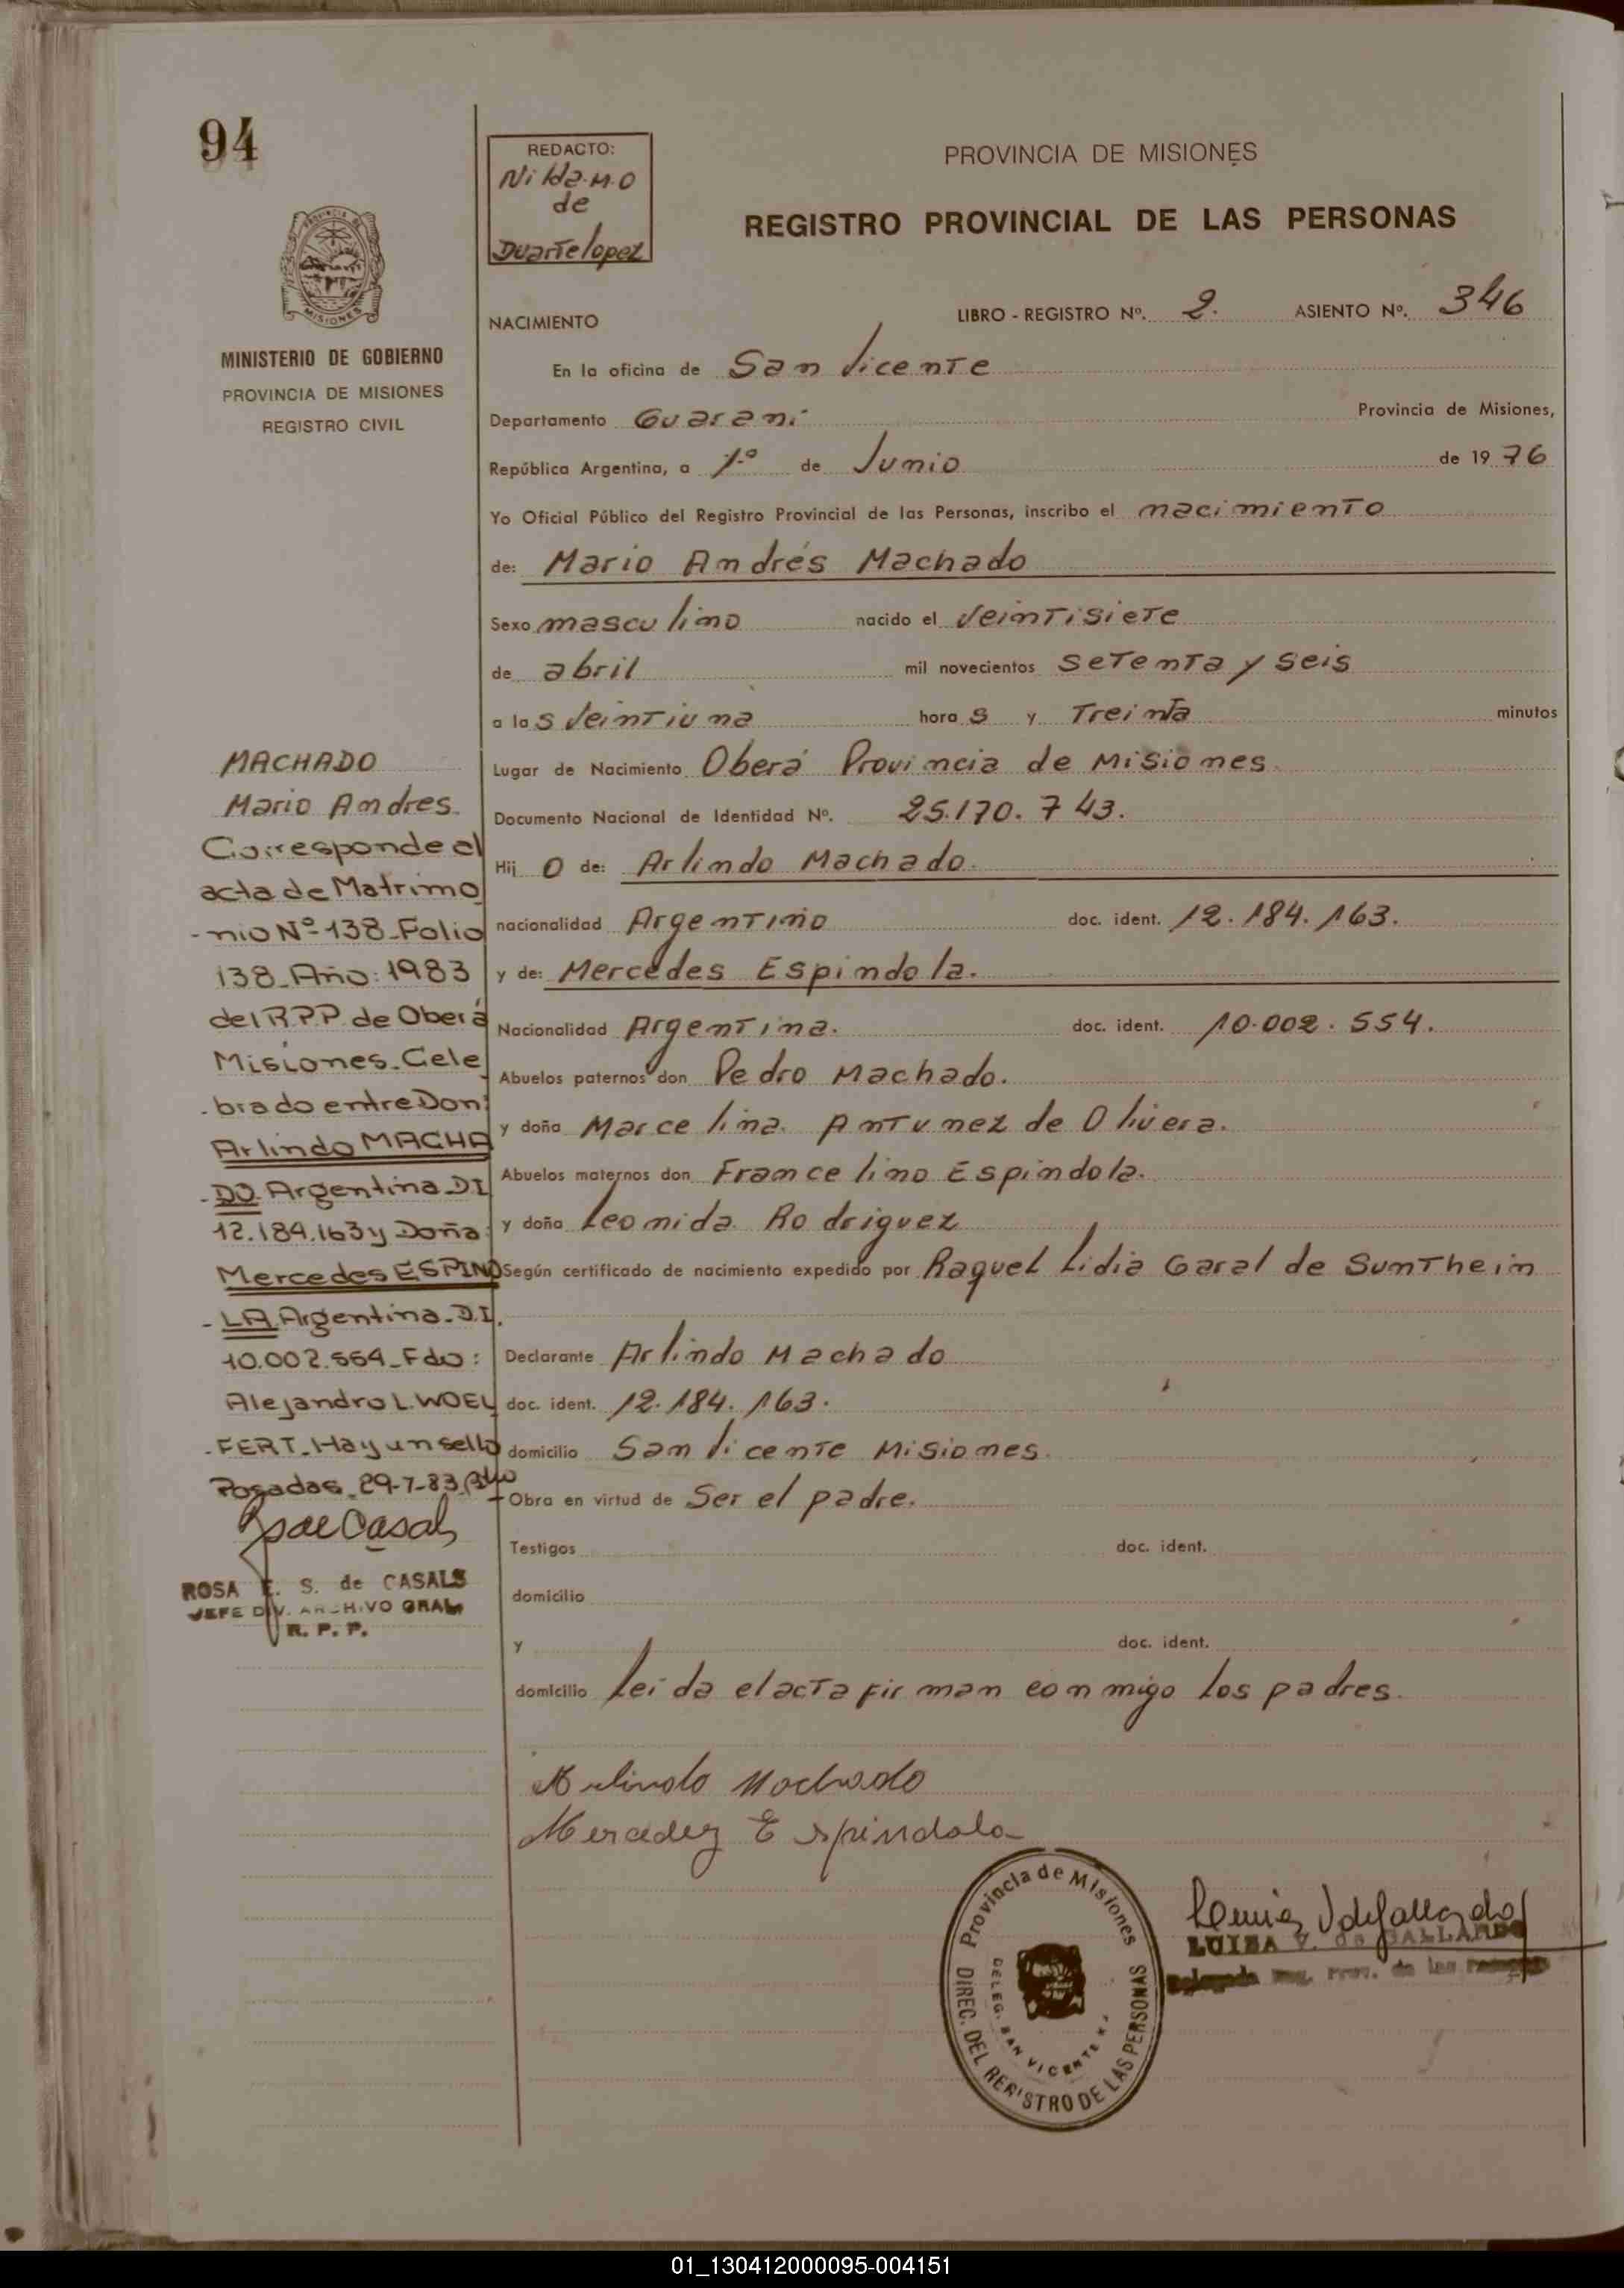 94
REDACTO:
Nilda.M.O
de
Duarte lopez
PROVINCIA DE MISIONES
REGISTRO PROVINCIAL DE LAS PERSONAS
MISIONES
MINISTERIO DE GOBIERNO
PROVINCIA DE MISIONES
REGISTRO CIVIL
NACIMIENTO LIBRO - REGISTRO Nº. 2. ASIENTO Nº. 346
En la oficina de San Vicente
Departamento Guaraní Provincia de Misiones,
República Argentina, a 1.º de Junio de 19 76
Yo Oficial Público del Registro Provincial de las Personas, inscribo el nacimiento
de: Mario Andrés Machado
Sexo masculino nacido el Veintisiete
de abril mil novecientos setenta y seis
a las Veintiuna horas y Treinta minutos
Lugar de Nacimiento Oberá Provincia de Misiones
Documento Nacional de Identidad Nº. 25.170.743.
Hij o de: Arlindo Machado.
nacionalidad Argentino doc. ident. 12.184.163.
y de: Mercedes Espindola.
Nacionalidad Argentina. doc. ident. 10.002.554.
Abuelos paternos don Pedro Machado.
y doña Marcelina. Antunez de Olivera.
Abuelos maternos don Francelino Espindola.
y doña Leonida Rodriguez
Según certificado de nacimiento expedido por Raquel Lidia Garal de Suntheim
Declarante Arlindo Machado
doc. ident. 12.184.163.
domicilio San Vicente Misiones.
Obra en virtud de Ser el padre.
Testigos doc. ident.
domicilio
y doc. ident.
domicilio Leida el acta firman conmigo los padres.
MACHADO
Mario Andres.
Corresponde al
acta de Matrimo
-nio Nº-138-Folio
138-Año: 1983
del R.P.P. de Oberá
Misiones-Cele
-brado entre Don:
Arlindo MACHA
-DO Argentina-D.I
12.184.163 y Doña:
Mercedes ESPINDO
-LA Argentina-D.I.
10.002.554-Fdo:
Alejandro L. WOEL
-FERT-Hay un sello
Posadas-29-7-83
ROSA E. S. de CASALS
JEFE DIV. ARCHIVO GRAL
R. P. P.
Arlindo Machado
Mercedez Espindola
Provincia de Misiones
DIREC. DEL REGISTRO DE LAS PERSONAS
DELEG. SAN VICENTE
LUISA V. de GALLARDO
Delegada Reg. Prov. de las Personas
01_130412000095-004151